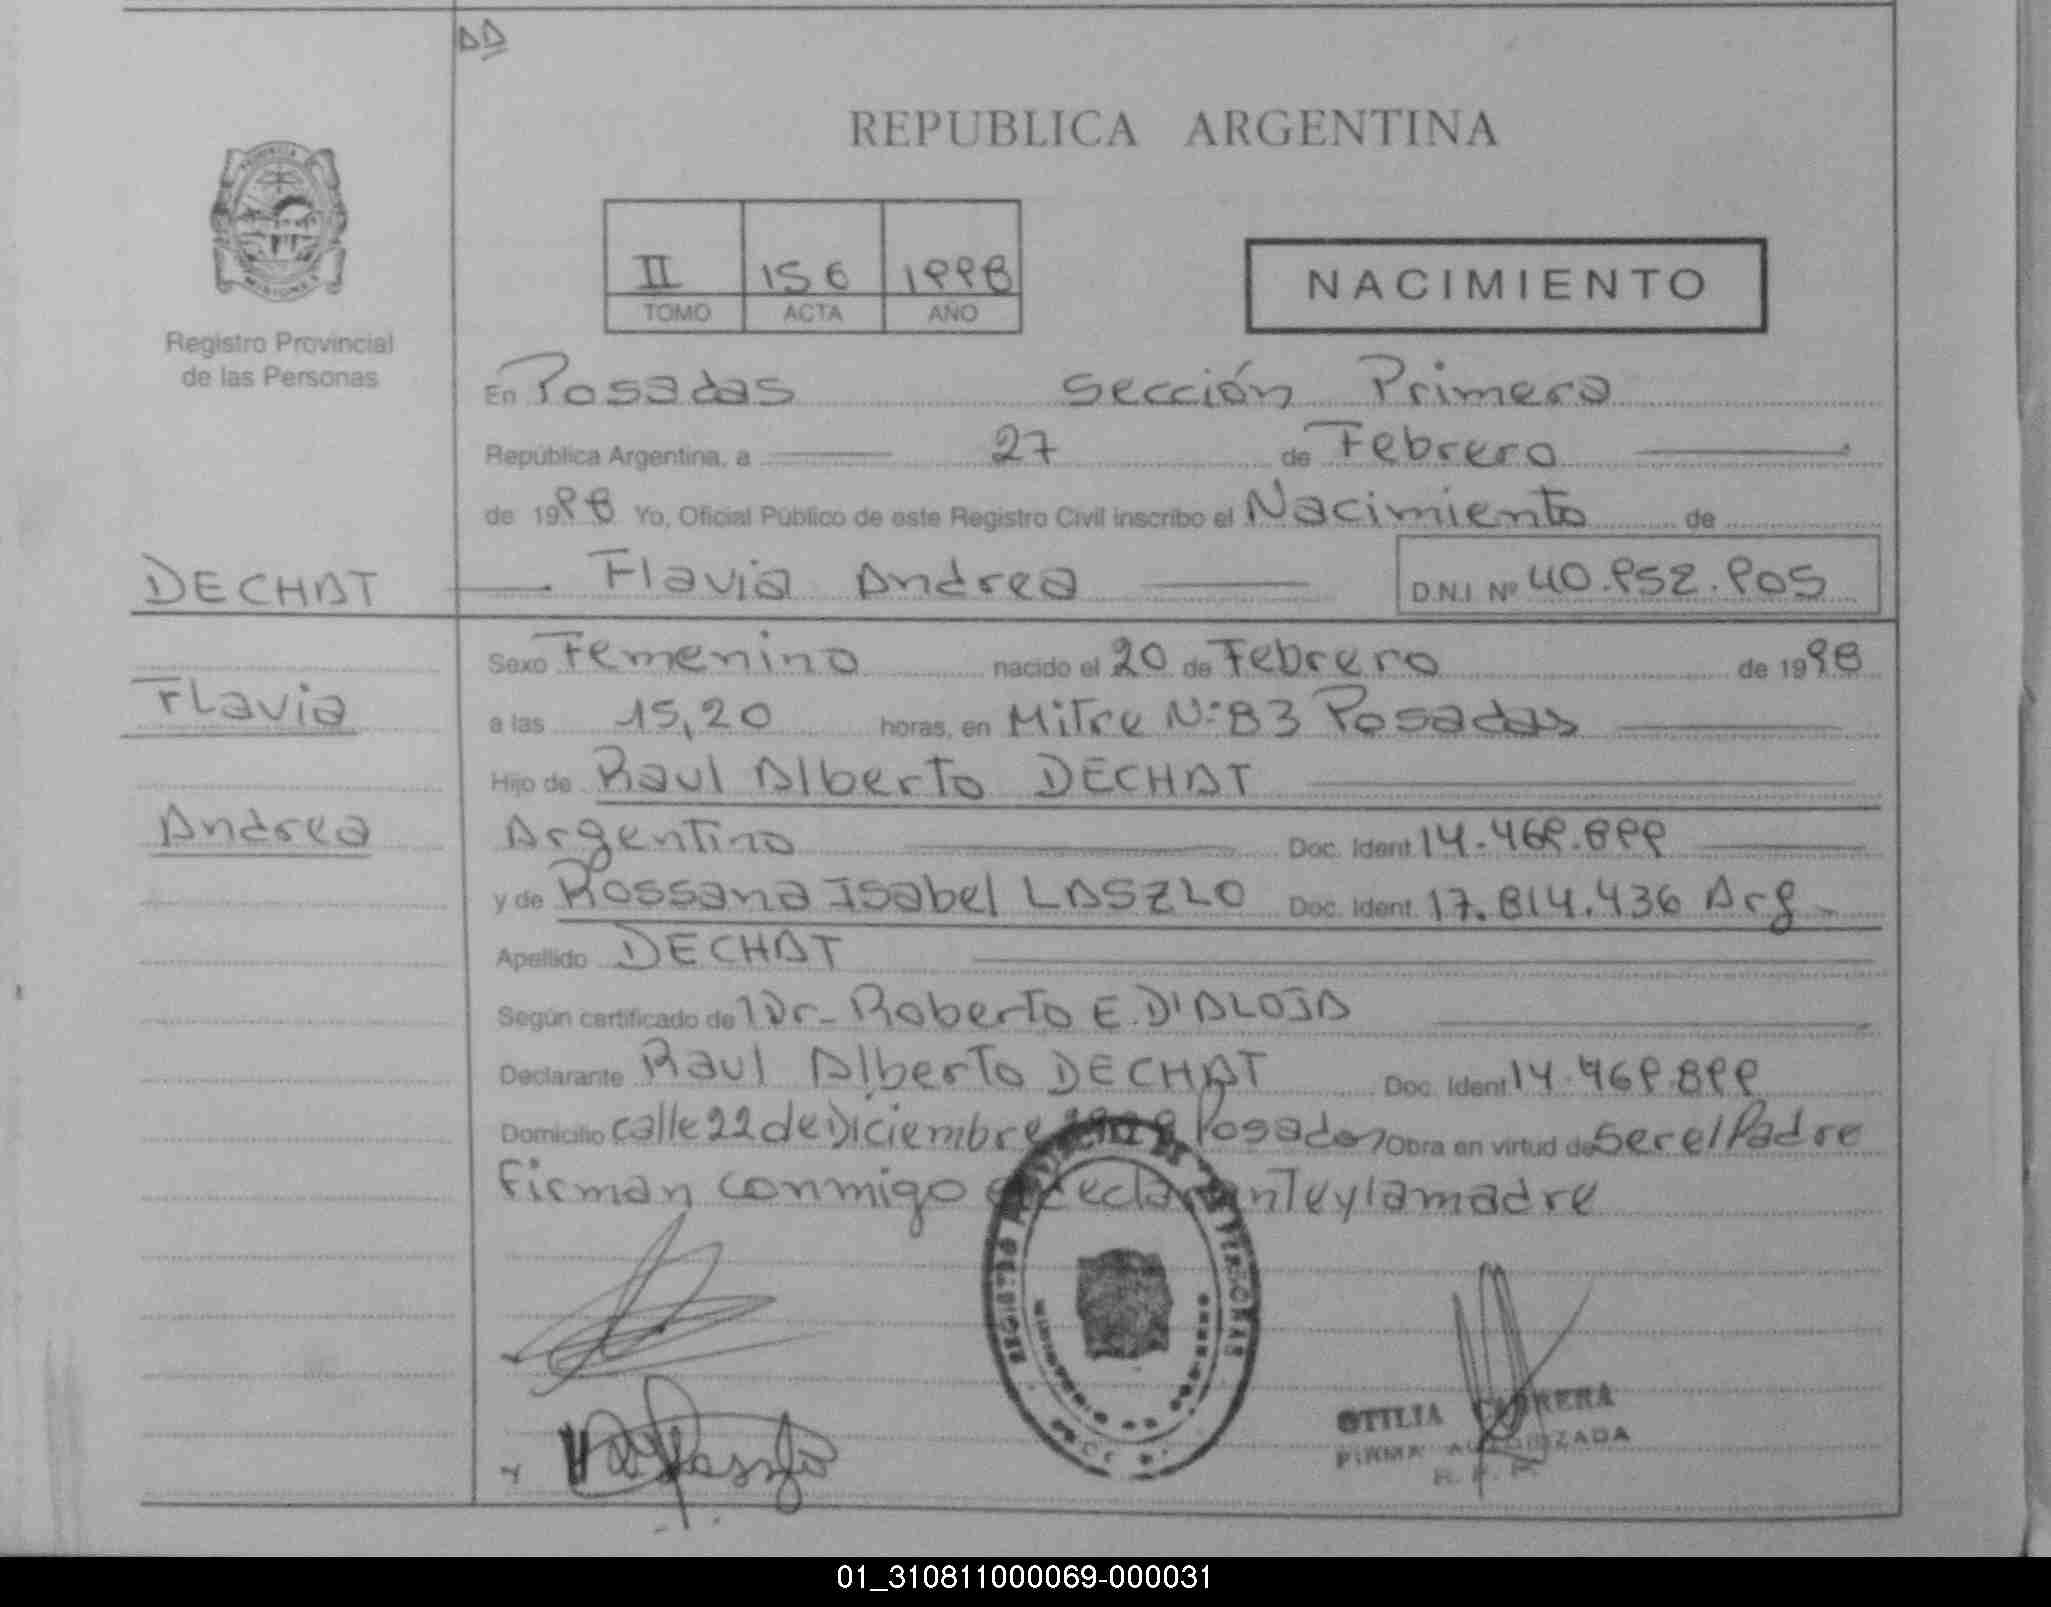 DD
REPUBLICA ARGENTINA
II 156 1998
TOMO ACTA AÑO
NACIMIENTO
Registro Provincial
de las Personas
En Posadas Sección Primera
República Argentina, a 27 de Febrero
de 1998 Yo, Oficial Público de este Registro Civil inscribo el Nacimiento de
DECHAT Flavia Andrea D.N.I Nº 40.952.905
Sexo Femenino nacido el 20 de Febrero de 1998
Flavia
a las 15,20 horas, en Mitre Nº 83 Posadas
Hijo de Raul Alberto DECHAT
Andrea
Argentino Doc. Ident. 14.469.899
y de Rossana Isabel LASZLO Doc. Ident. 17.814.436 Arg
Apellido DECHAT
Según certificado del Dr. Roberto E. D'ALOJA
Declarante Raul Alberto DECHAT Doc. Ident. 14.469.899
Domicilio calle 22 de Diciembre Posadas Obra en virtud de Ser el Padre
Firman conmigo el declarante y la madre
OTILIA CABRERA
FIRMA AUTORIZADA
R. P. P.
01_310811000069-000031